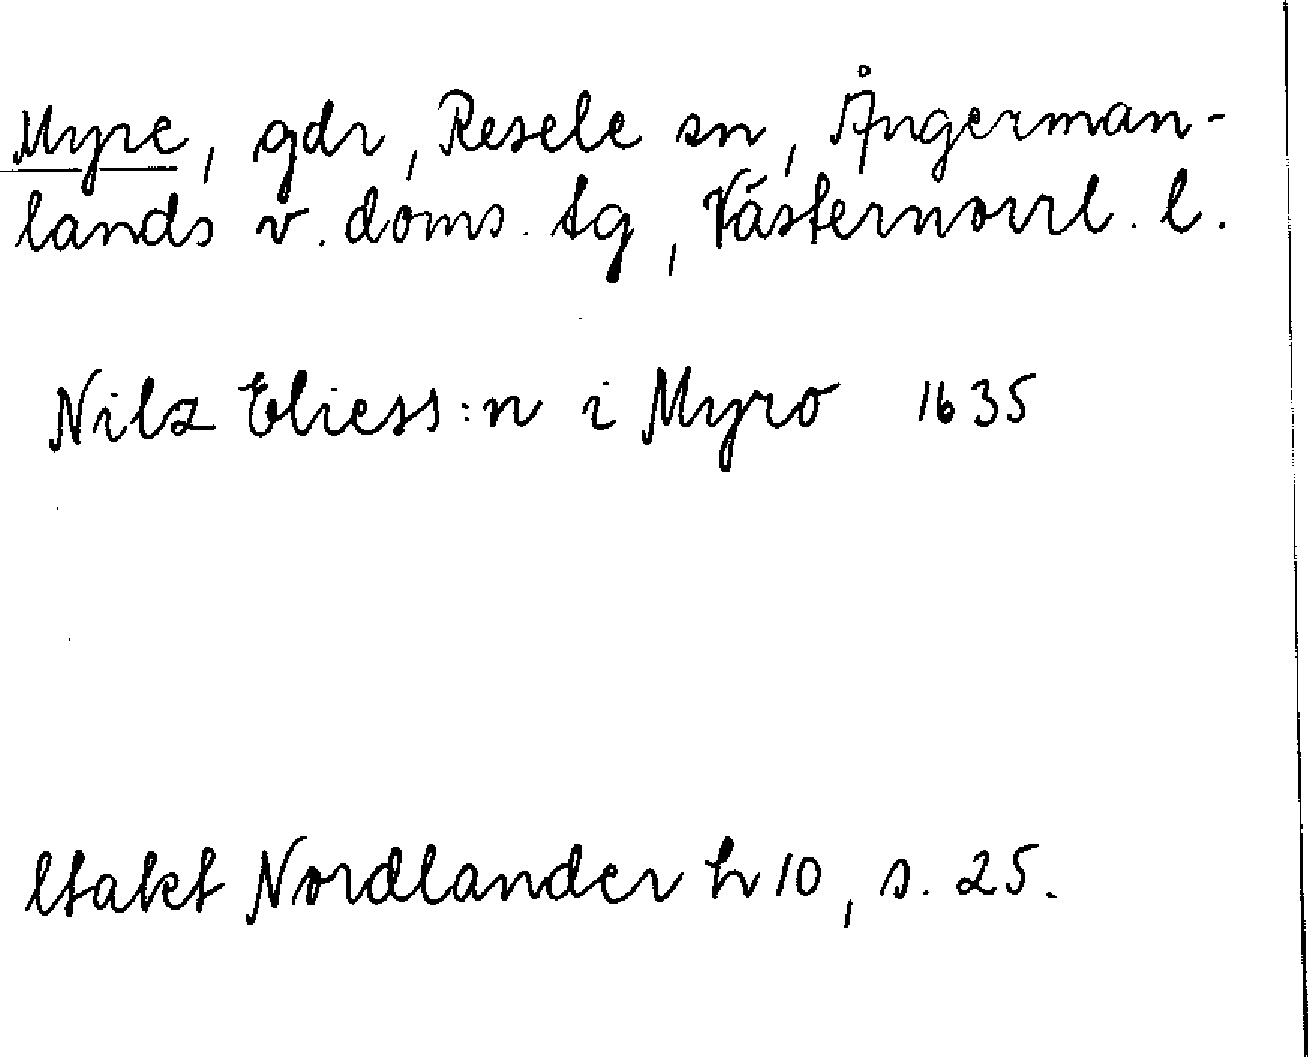 Myre, gdr, Resele sn, Ångerman-
lands v. doms. tg, Västernorrl. l.
Nilz Eliess:n i Myro 1635
Utakt Nordlander h 10, s. 25.